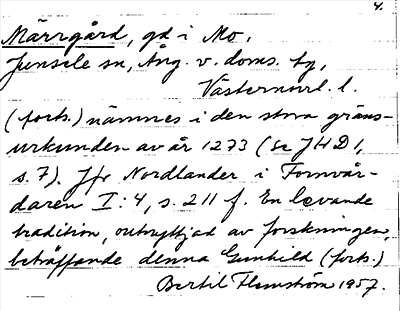 4.
Märrgård, gd i Mo,
Junsele sn, Ång. v. doms. tg,
Västernorrl. l.
(forts.) nämnes i den stora gräns-
urkunden av år 1273 (Se JHD 1,
s. 7). Jfr Nordlander i Fornvår-
daren I:4, s. 211 f. En levande
tradition, outnyttjad av forskningen,
beträffande denna Gunhild (forts.)
Bertil Flemström 1957.